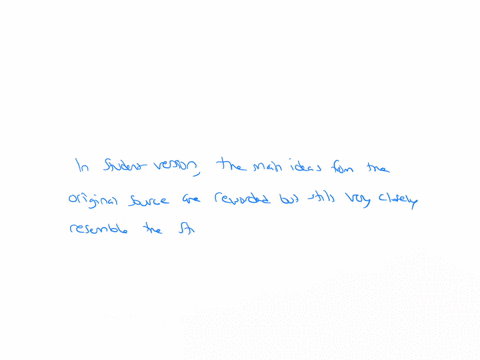 In student version, the main ideas from the
original source are reworded but still very closely
resemble the st